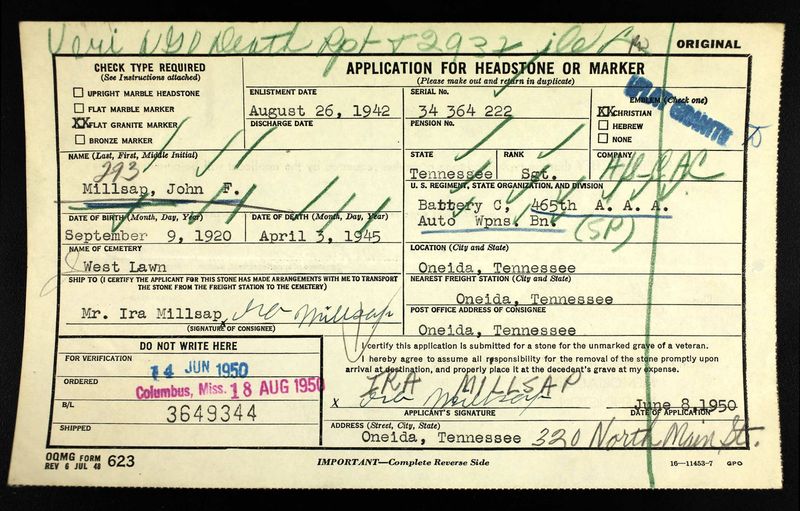 Veri Death Rpt 293
ORIGINAL
CHECK TYPE REQUIRED
(See Instructions attached)
☐ UPRIGHT MARBLE HEADSTONE
☐ FLAT MARBLE MARKER
XX FLAT GRANITE MARKER
☐ BRONZE MARKER
APPLICATION FOR HEADSTONE OR MARKER
(Please make out and return in duplicate)
ENLISTMENT DATE
August 26, 1942
DISCHARGE DATE
SERIAL No.
34 364 222
PENSION No.
EMBLEM (Check one)
XX CHRISTIAN
☐ HEBREW
☐ NONE
FLAT GRANITE
NAME (Last, First, Middle Initial)
293
Millsap, John F.
STATE
Tennessee
RANK
Sgt.
COMPANY
U. S. REGIMENT, STATE ORGANIZATION, AND DIVISION
Battery C, 465th A. A. A.
Auto Wpns. Bn.
(SP)
DATE OF BIRTH (Month, Day, Year)
September 9, 1920
DATE OF DEATH (Month, Day, Year)
April 3, 1945
NAME OF CEMETERY
West Lawn
LOCATION (City and State)
Oneida, Tennessee
SHIP TO (I CERTIFY THE APPLICANT FOR THIS STONE HAS MADE ARRANGEMENTS WITH ME TO TRANSPORT
THE STONE FROM THE FREIGHT STATION TO THE CEMETERY)
Mr. Ira Millsap Ira Millsap
(SIGNATURE OF CONSIGNEE)
NEAREST FREIGHT STATION (City and State)
Oneida, Tennessee
POST OFFICE ADDRESS OF CONSIGNEE
Oneida, Tennessee
DO NOT WRITE HERE
FOR VERIFICATION
14 JUN 1950
ORDERED
Columbus, Miss. 18 AUG 1950
B/L
3649344
SHIPPED
I certify this application is submitted for a stone for the unmarked grave of a veteran.
I hereby agree to assume all responsibility for the removal of the stone promptly upon
arrival at destination, and properly place it at the decedent's grave at my expense.
IRA MILLSAP
x Ira Millsap
June 8, 1950
APPLICANT'S SIGNATURE
DATE OF APPLICATION
ADDRESS (Street, City, State)
Oneida, Tennessee 320 North Main St.
OQMG FORM
REV 6 JUL 48 623
IMPORTANT—Complete Reverse Side
16—11453-7 GPO